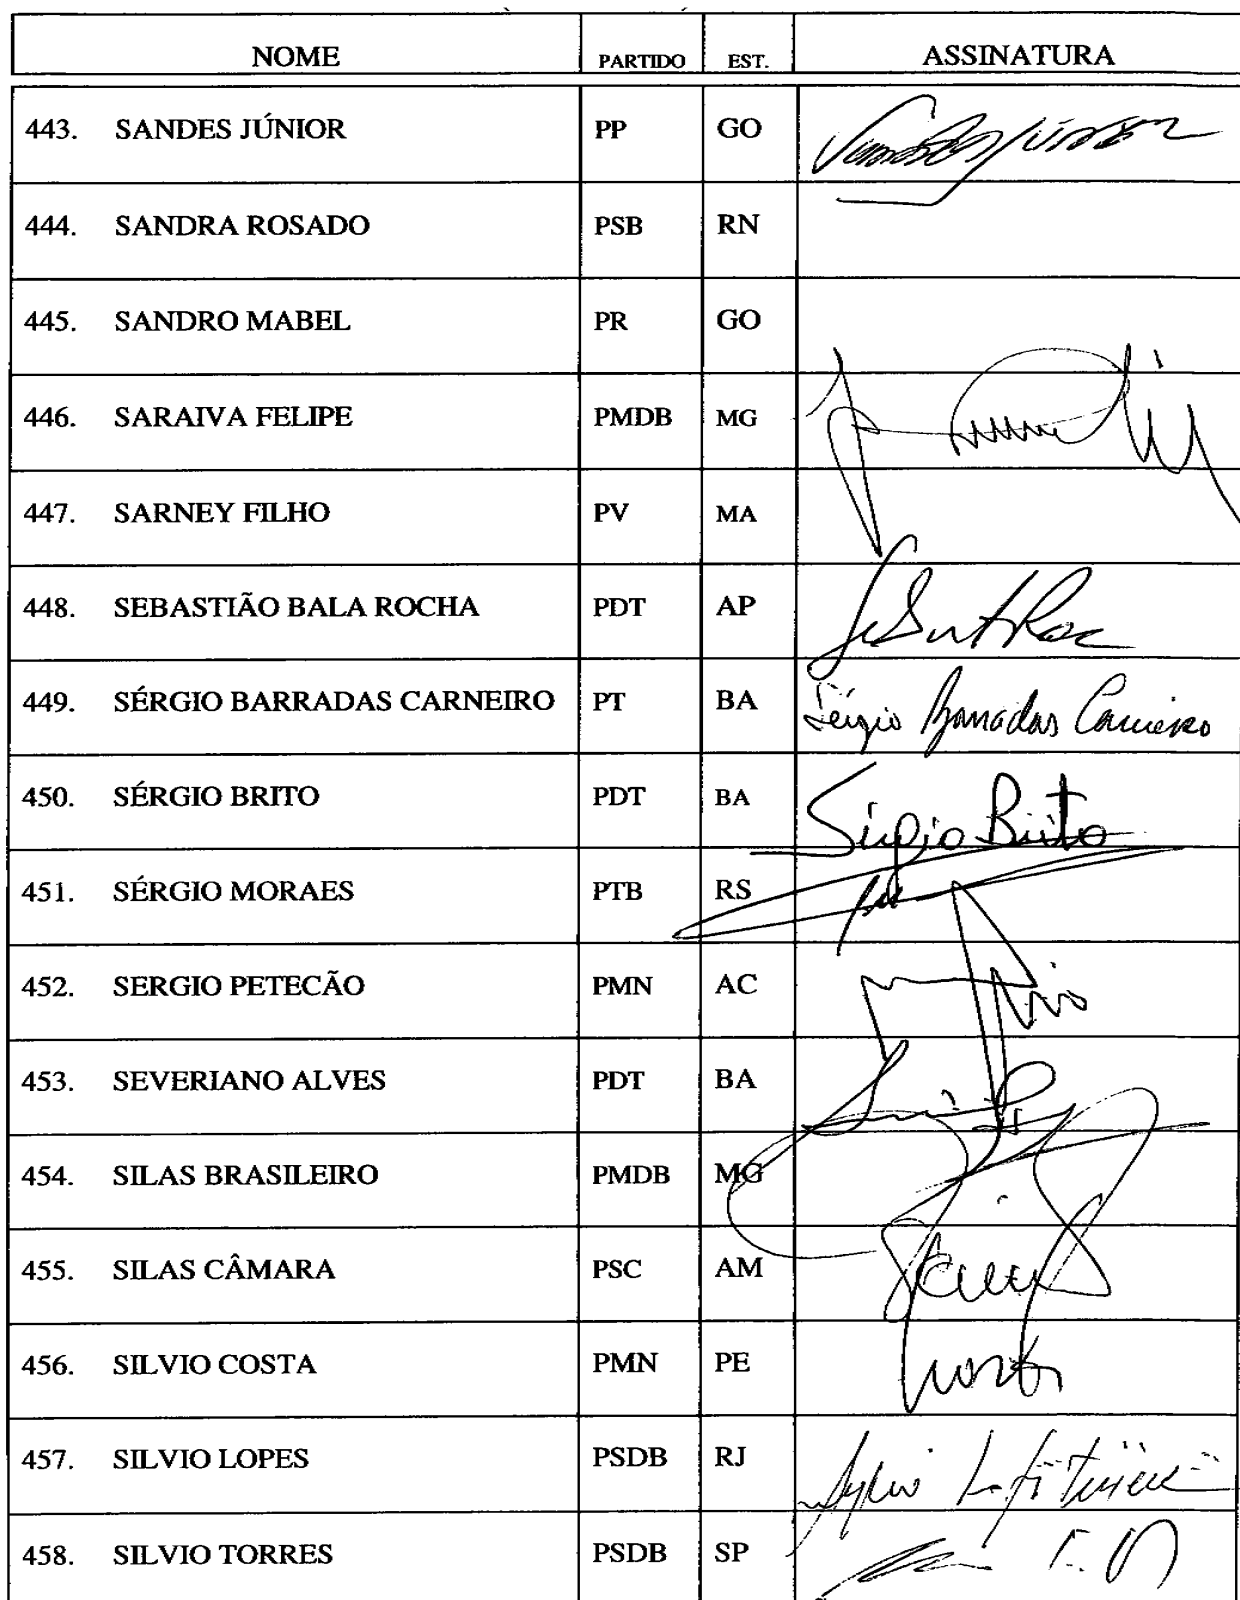 NOME PARTIDO EST. ASSINATURA
443. SANDES JÚNIOR PP GO
444. SANDRA ROSADO PSB RN
445. SANDRO MABEL PR GO
446. SARAIVA FELIPE PMDB MG
447. SARNEY FILHO PV MA
448. SEBASTIÃO BALA ROCHA PDT AP
449. SÉRGIO BARRADAS CARNEIRO PT BA Sérgio Barradas Carneiro
450. SÉRGIO BRITO PDT BA Sérgio Brito
451. SÉRGIO MORAES PTB RS
452. SERGIO PETECÃO PMN AC
453. SEVERIANO ALVES PDT BA
454. SILAS BRASILEIRO PMDB MG
455. SILAS CÂMARA PSC AM
456. SILVIO COSTA PMN PE
457. SILVIO LOPES PSDB RJ
458. SILVIO TORRES PSDB SP